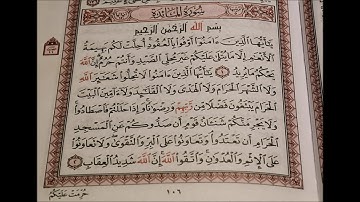 سُورَةُ المَائِدَةِ
بِسْمِ اللَّهِ الرَّحْمَٰنِ الرَّحِيمِ
يَٰٓأَيُّهَا الَّذِينَ ءَامَنُوٓا۟ أَوْفُوا۟ بِالْعُقُودِ أُحِلَّتْ لَكُم بَهِيمَةُ
الْأَنْعَٰمِ إِلَّا مَا يُتْلَىٰ عَلَيْكُمْ غَيْرَ مُحِلِّى الصَّيْدِ وَأَنتُمْ حُرُمٌ إِنَّ اللَّهَ
يَحْكُمُ مَا يُرِيدُ ١ يَٰٓأَيُّهَا الَّذِينَ ءَامَنُوا۟ لَا تُحِلُّوا۟ شَعَٰٓئِرَ اللَّهِ
وَلَا الشَّهْرَ الْحَرَامَ وَلَا الْهَدْىَ وَلَا الْقَلَٰٓئِدَ وَلَآ ءَآمِّينَ الْبَيْتَ
الْحَرَامَ يَبْتَغُونَ فَضْلًا مِّن رَّبِّهِمْ وَرِضْوَٰنًا وَإِذَا حَلَلْتُمْ فَاصْطَادُوا۟
وَلَا يَجْرِمَنَّكُمْ شَنَـَٔانُ قَوْمٍ أَن صَدُّوكُمْ عَنِ الْمَسْجِدِ
الْحَرَامِ أَن تَعْتَدُوا۟ وَتَعَاوَنُوا۟ عَلَى الْبِرِّ وَالتَّقْوَىٰ وَلَا تَعَاوَنُوا۟
عَلَى الْإِثْمِ وَالْعُدْوَٰنِ وَاتَّقُوا۟ اللَّهَ إِنَّ اللَّهَ شَدِيدُ الْعِقَابِ ٢
١٠٦
حُرِّمَتْ عَلَيْكُمُ